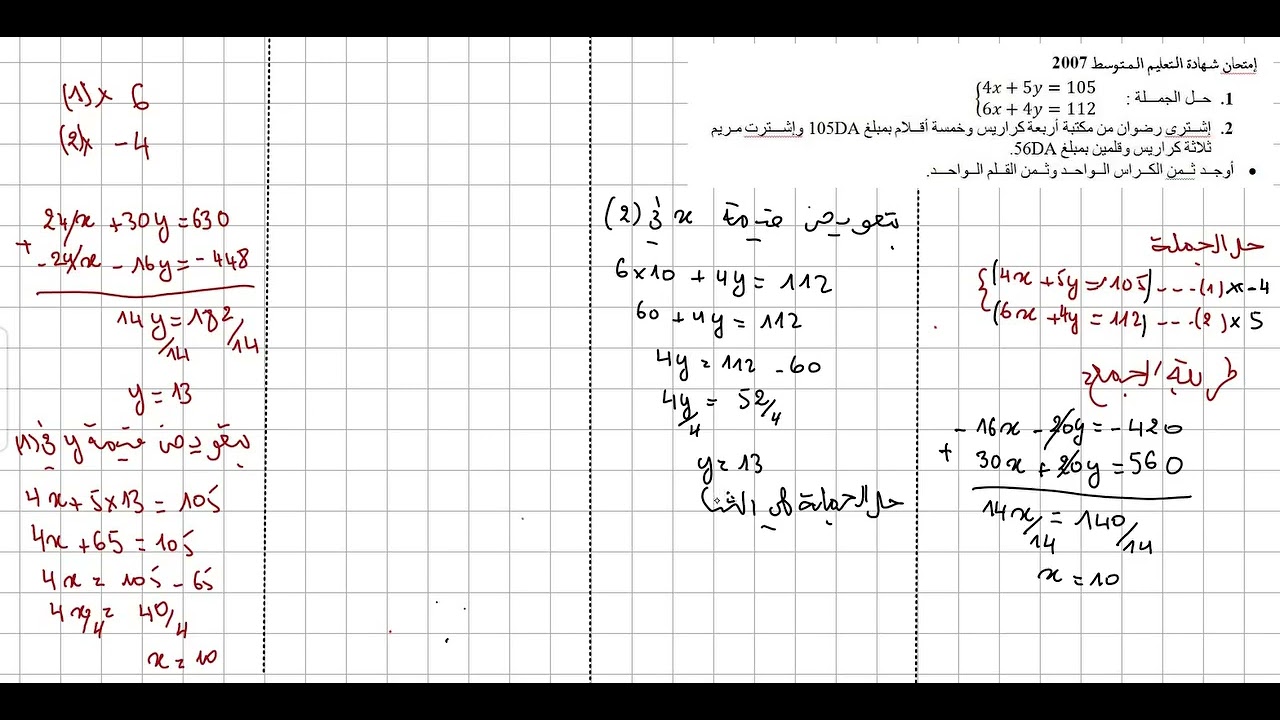 إمتحان شهادة التعليم المتوسط 2007
1. حل الجملة : {4x + 5y = 105
6x + 4y = 112
2. إشترى رضوان من مكتبة أربعة كراريس وخمسة أقلام بمبلغ 105DA وإشترت مريم
ثلاثة كراريس وقلمين بمبلغ 56DA.
• أوجد ثمن الكراس الواحد وثمن القلم الواحد.
حل الجملة
{(4x + 5y = 105) --- (1) x -4
(6x + 4y = 112) --- (2) x 5
طريقة الجمع
- 16x - 20y = - 420
+ 30x + 20y = 560
14x/14 = 140/14
x = 10
بتعويض قيمة x في (2)
6x10 + 4y = 112
60 + 4y = 112
4y = 112 - 60
4y/4 = 52/4
y = 13
حل الجملة هي الثنا
(1)x 6
(2)x -4
24x + 30y = 630
+ - 24x - 16y = - 448
14y/14 = 182/14
y = 13
بتعويض قيمة y في (1)
4x + 5x13 = 105
4x + 65 = 105
4x = 105 - 65
4x/4 = 40/4
x = 10